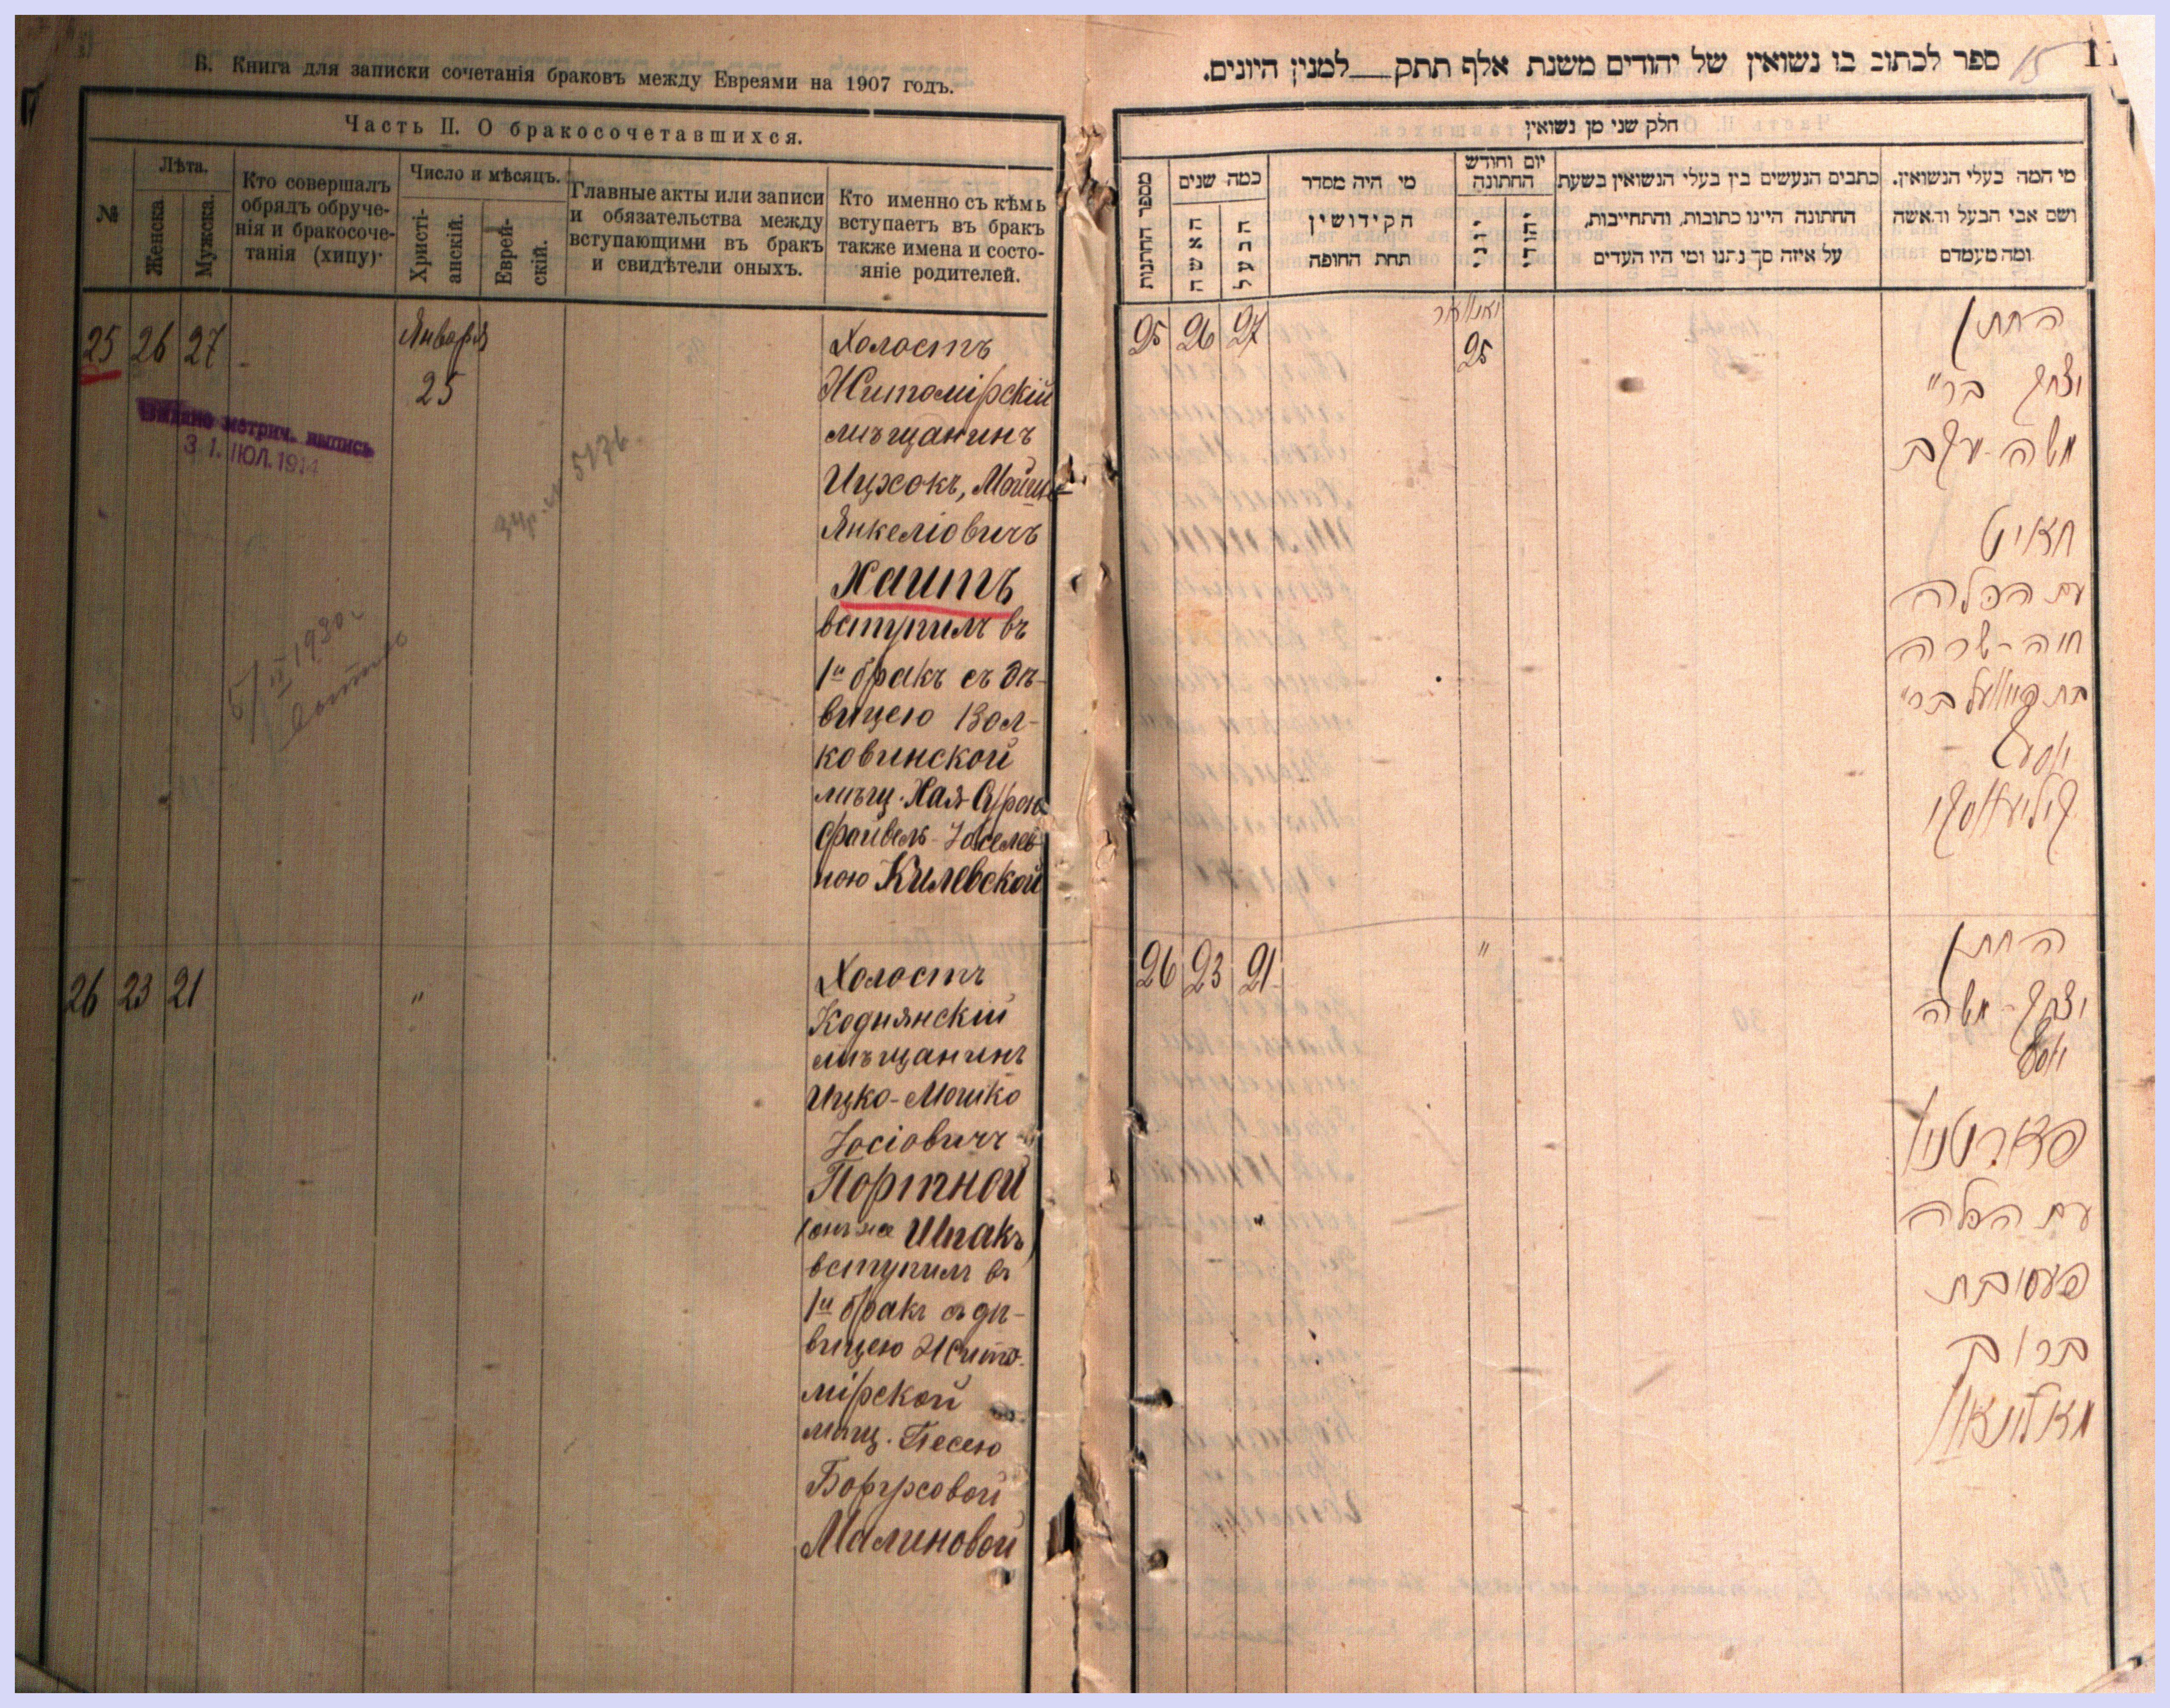 В. Книга для записки сочетанія браковъ между Евреями на 1907 годъ.
Часть II. О бракосочетавшихся.
№
Лѣта.
Женска
Мужска.
Кто совершалъ
обрядъ обруче-
нія и бракосоче-
танія (хипу).
Число и мѣсяцъ.
Христі-
анскій.
Еврей-
скій.
Главные акты или записи
и обязательства между
вступающими въ бракъ
и свидѣтели оныхъ.
Кто именно съ кѣмъ
вступаетъ въ бракъ
также имена и состо-
яніе родителей.
25 26 27
Января
25
Выдана метрич. выпись
31. ІЮЛ. 1914
5136
Холостъ
Житомірскій
мѣщанинъ
Ицхокъ, Мойше
Янкеліовичъ
Хаитъ
вступилъ въ
1й бракъ съ дѣ-
вицею Вол-
ковинской
мѣщ. Хая-Сурою
Файвель-Іоселев
ною Килевской
26 23 21 "
Холостъ
Коднянскій
мѣщанинъ
Ицко-Мошко
Іосіовичъ
Портной
(онъ же Шпакъ)
вступилъ въ
1й бракъ съ дѣ-
вицею Жито-
мірской
мѣщ. Песею
Боруховой
Малиновой
ספר לכתוב בו נשואין של יהודים משנת אלף תתק למנין היונים.
15
חלק שני מן נשואין
מספר החתנות
כמה שנים
האשה
הבעל
מי היה מסדר
הקידושין
תחת החופה
יום וחודש
החתונה
יוני
יהודי
כתבים הנעשים בין בעלי הנשואין בשעת
החתונה היינו כתובות, והתחייבות,
על איזה סך נתנו ומי היו העדים
מי המה בעלי הנשואין.
ושם אבי הבעל והאשה
ומה מעמדם
25 26 27
יאנואר
25
החתן
יצחק בר"י
משה-יעקב
חאיט
עם הכלה
חיה-שרה
בת פייוועל בר"י
יוסף
קיליעווסקי
26 23 21 "
החתן
יצחק-משה
יוסף
פארטנוי
עם הכלה
פעסי בת
ברוך
מאלינאוו